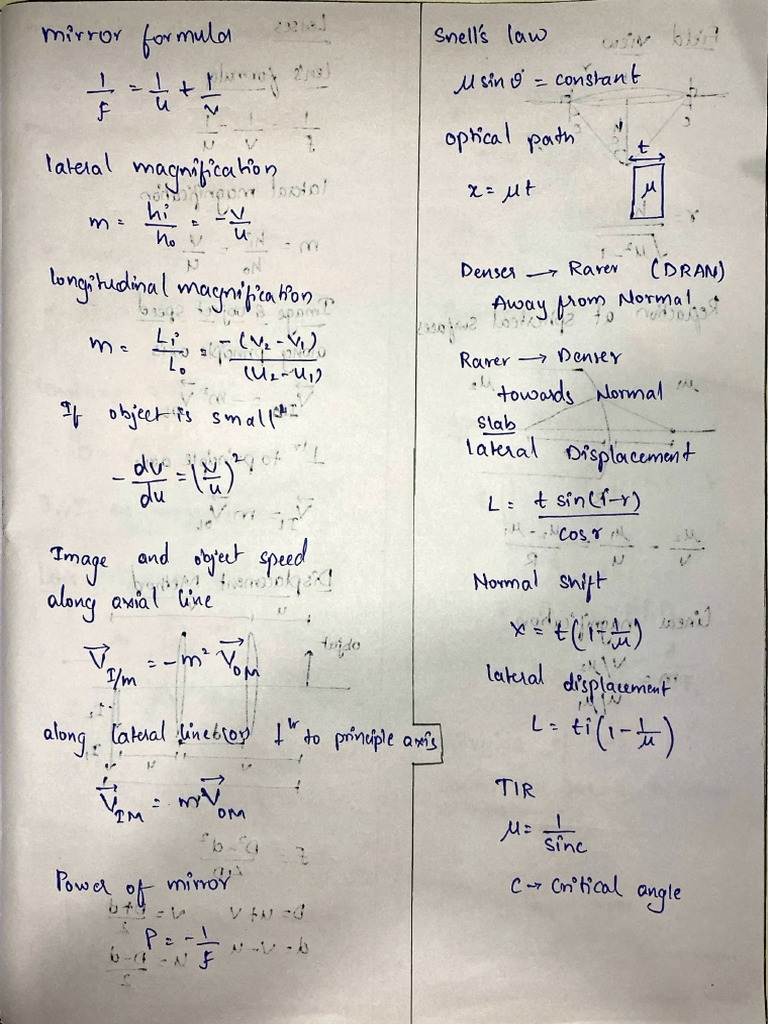 mirror formula
1/f = 1/u + 1/v
lateral magnification
m = hi/ho = -v/u
longitudinal magnification
m = Li/Lo = -(v₂-v₁)/(u₂-u₁)
If object is small
-dv/du = (v/u)²
Image and object speed
along axial line
V⃗ I/m = -m² V⃗ OM
along lateral line (or) ⊥lr to principle axis
V⃗ IM = m V⃗ OM
Power of mirror
P = -1/f
Snell's law
μ sin θ = constant
optical path
t
x = μt
μ
Denser → Rarer (DRAN)
Away from Normal
Rarer → Denser
towards Normal
Slab
lateral Displacement
L = t sin(i-r)/cos r
Normal shift
x = t(1-1/μ)
lateral displacement
L = ti(1-1/μ)
TIR
μ = 1/sinc
C → Critical angle